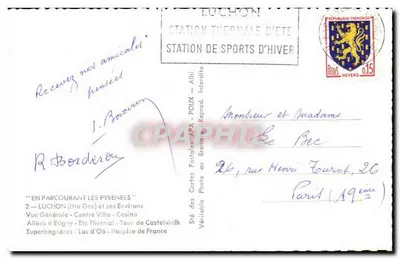 LUCHON
STATION THERMALE D'ETE
STATION DE SPORTS D'HIVER
REPUBLIQUE FRANÇAISE
POSTES
0,15
NEVERS
Recevez nos amicales
pensées
R. Borderou
Monsieur et Madame
Le Bec
26, rue Henri Turot, 26
Paris (19eme)
"EN PARCOURANT LES PYRENEES"
2 - LUCHON (Hte Gne) et ses Environs
Vue Générale - Centre Ville - Casino
Allées d'Etigny - Ets Thermal - Tour de Castelvielh
Superbagnères - Lac d'Oô - Hospice de France
Sté des Cartes Postales APA - POUX - Albi
Véritable Photo au Bromure - Reprod. Interdite
PHENIXARTCARTES.COM